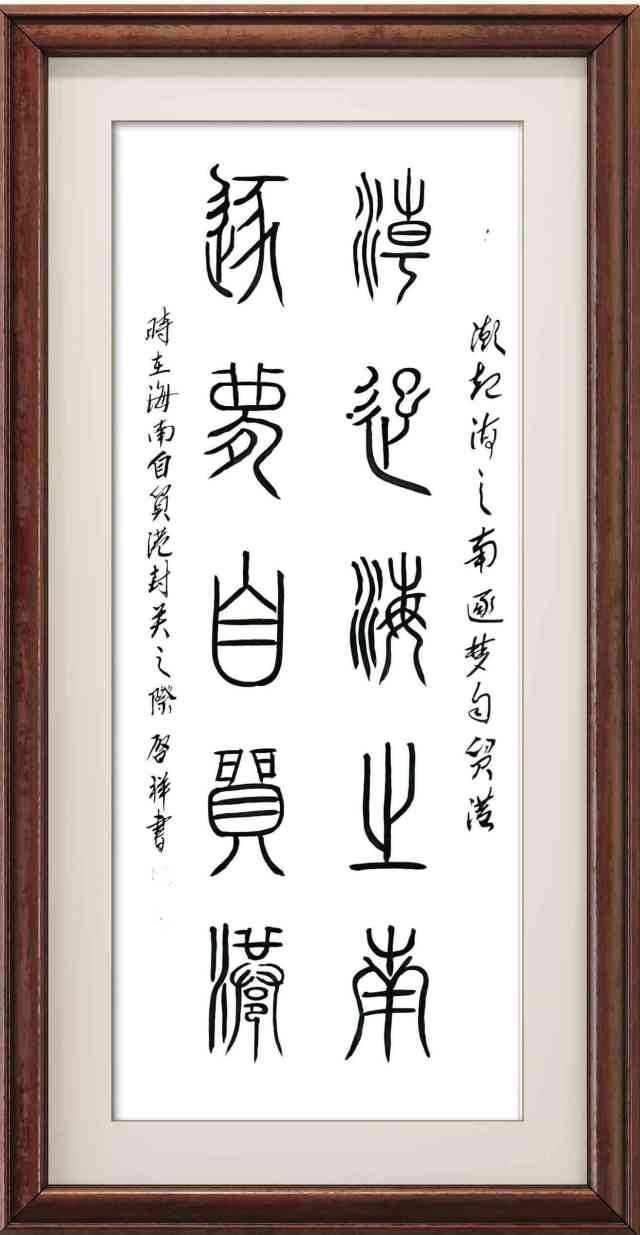 潮起海之南逐梦自贸港
潮起海之南
逐夢自貿港
時在海南自貿港封关之際啓祥書